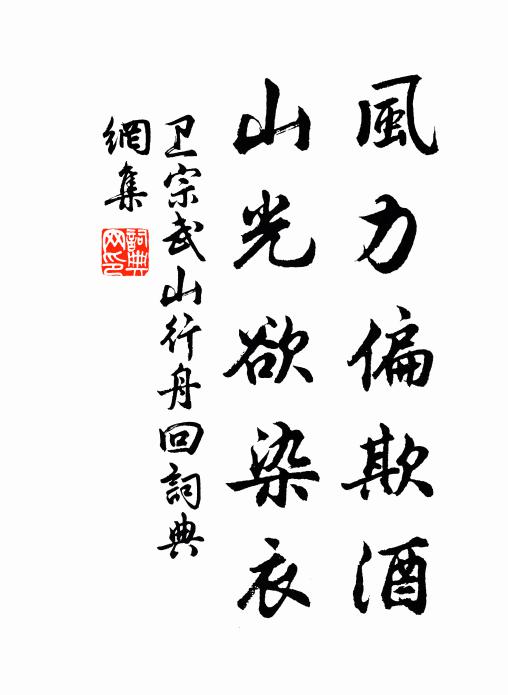 風力偏欺酒
山光欲染衣
卫宗武山行舟回詞典
網集
詞典
网印